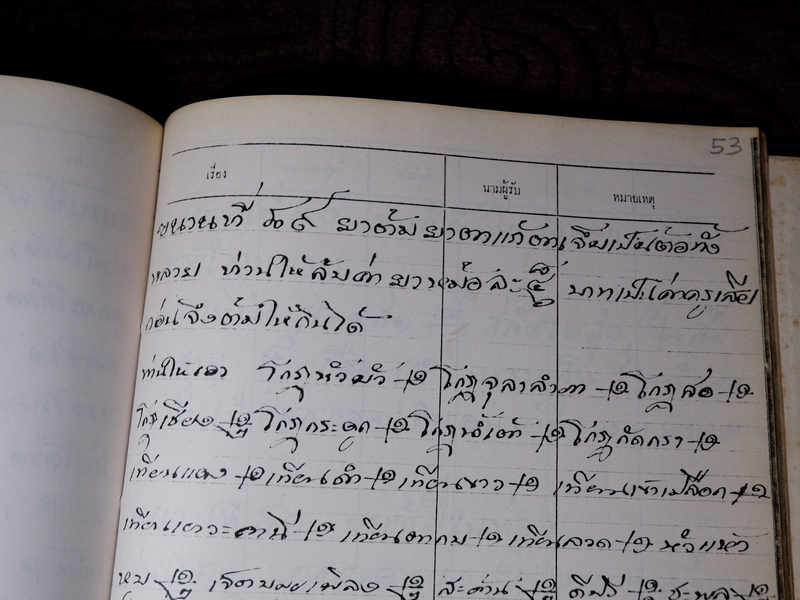 53
เรื่อง นามผู้รับ หมายเหตุ
ขนานที่ ๖๙ ยาต้ม ยาตาแก้ตาเจ็บเป็นต้อทั้ง
หลาย ท่านให้ลับค่ายาหม้อละ บาทเป็นค่าครูเสีย
ก่อนจึงต้มให้กินได้
ท่านให้เอา โกฎหัวบัว ๑ โกฎจุลาลำภา ๑ โกฎสอ ๑
โกฎเชียง ๑ โกฎกระดูก ๑ โกฎน้ำเต้า ๑ โกฎกัดกรา ๑
เทียนแดง ๑ เทียนดำ ๑ เทียนขาว ๑ เทียนเข้าเปลือก ๑
เทียนเยาวะภานี ๑ เทียนตากบ ๑ เทียนลวด ๑ หัวแห้ว
หมู ๑ เจตมูลเพลิง ๑ สะค่าน ๑ ดีปรี ๑ ชะพลู ๑